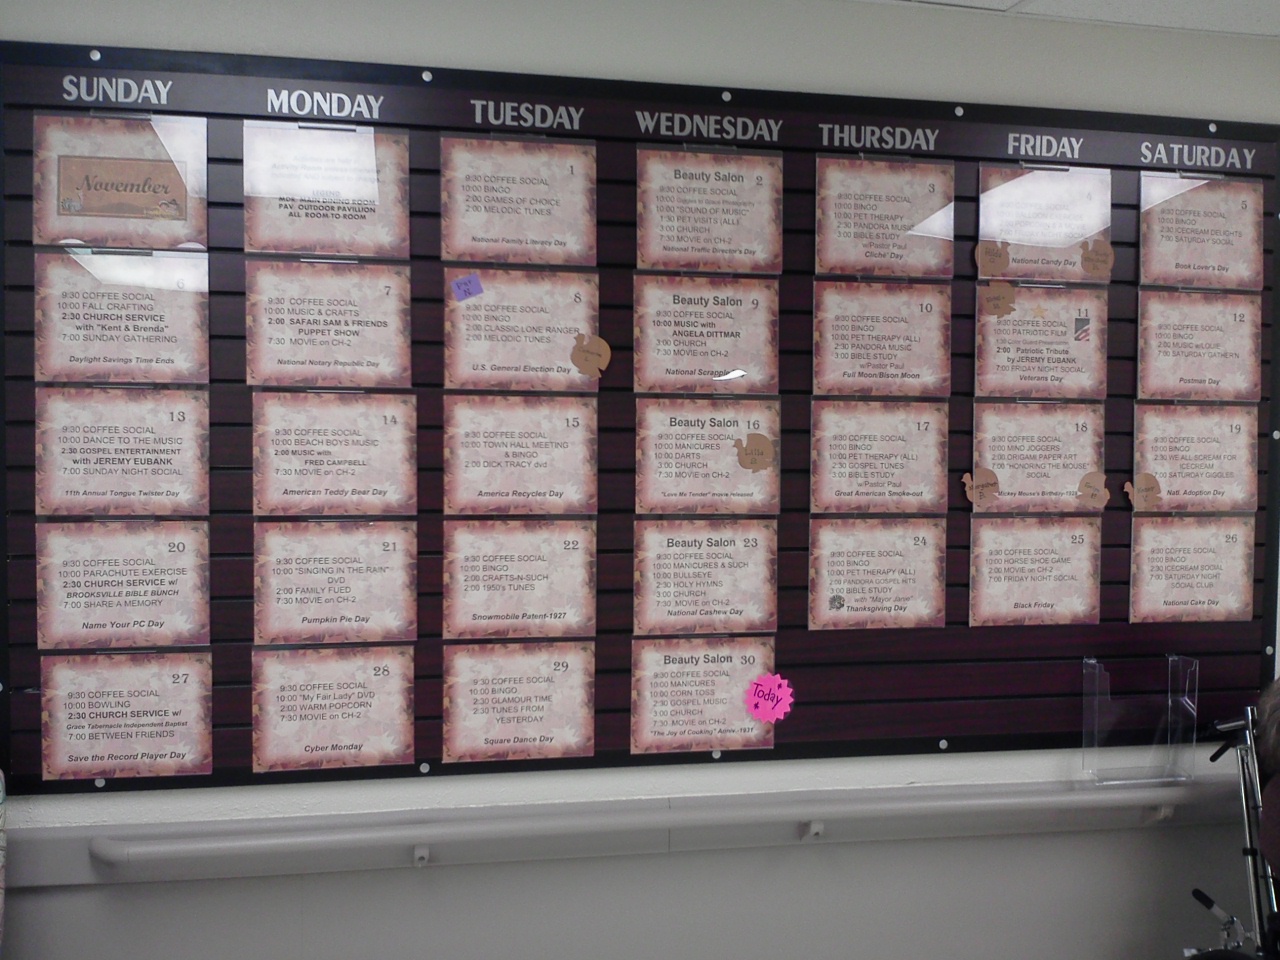 SUNDAY MONDAY TUESDAY WEDNESDAY THURSDAY FRIDAY SATURDAY
November
LEGEND
MDR. MAIN DINING ROOM
PAV. OUTDOOR PAVILLION
ALL ROOM TO ROOM
1
9:30 COFFEE SOCIAL
10:00 BINGO
2:00 GAMES OF CHOICE
2:00 MELODIC TUNES
National Family Literacy Day
Beauty Salon 2
9:30 COFFEE SOCIAL
10:00 "SOUND OF MUSIC"
1:30 PET VISITS (ALL)
3:00 CHURCH
7:30 MOVIE on CH-2
National Traffic Director's Day
3
9:30 COFFEE SOCIAL
10:00 BINGO
10:00 PET THERAPY
2:30 PANDORA MUSIC
3:00 BIBLE STUDY
w/Pastor Paul
Cliché Day
National Candy Day
5
9:30 COFFEE SOCIAL
10:00 BINGO
2:30 ICECREAM DELIGHTS
7:00 SATURDAY SOCIAL
Book Lover's Day
6
9:30 COFFEE SOCIAL
10:00 FALL CRAFTING
2:30 CHURCH SERVICE
with "Kent & Brenda"
7:00 SUNDAY GATHERING
Daylight Savings Time Ends
7
9:30 COFFEE SOCIAL
10:00 MUSIC & CRAFTS
2:00 SAFARI SAM & FRIENDS
PUPPET SHOW
7:30 MOVIE on CH-2
National Notary Republic Day
8
9:30 COFFEE SOCIAL
10:00 BINGO
2:00 CLASSIC LONE RANGER
2:00 MELODIC TUNES
U.S. General Election Day
Beauty Salon 9
9:30 COFFEE SOCIAL
10:00 MUSIC with
ANGELA DITTMAR
3:00 CHURCH
7:30 MOVIE on CH-2
National Scrapple
10
9:30 COFFEE SOCIAL
10:00 BINGO
10:00 PET THERAPY (ALL)
2:30 PANDORA MUSIC
3:00 BIBLE STUDY
w/Pastor Paul
Full Moon/Bison Moon
11
9:30 COFFEE SOCIAL
10:00 PATRIOTIC FILM
2:00 Patriotic Tribute
by JEREMY EUBANK
7:00 FRIDAY NIGHT SOCIAL
Veterans Day
12
9:30 COFFEE SOCIAL
10:00 BINGO
2:30 MUSIC w/LOUIE
7:00 SATURDAY GATHERN
Postman Day
13
9:30 COFFEE SOCIAL
10:00 DANCE TO THE MUSIC
2:30 GOSPEL ENTERTAINMENT
with JEREMY EUBANK
7:00 SUNDAY NIGHT SOCIAL
11th Annual Tongue Twister Day
14
9:30 COFFEE SOCIAL
10:00 BEACH BOYS MUSIC
2:00 MUSIC with
FRED CAMPBELL
7:30 MOVIE on CH-2
American Teddy Bear Day
15
9:30 COFFEE SOCIAL
10:00 TOWN HALL MEETING
& BINGO
2:00 DICK TRACY dvd
America Recycles Day
Beauty Salon 16
9:30 COFFEE SOCIAL
10:00 MANICURES
10:00 DARTS
3:00 CHURCH
7:30 MOVIE on CH-2
"Love Me Tender" movie released
17
9:30 COFFEE SOCIAL
10:00 BINGO
10:00 PET THERAPY (ALL)
2:30 GOSPEL TUNES
3:00 BIBLE STUDY
w/Pastor Paul
Great American Smoke-out
18
9:30 COFFEE SOCIAL
10:00 MIND JOGGERS
2:00 ORIGAMI PAPER ART
7:00 "HONORING THE MOUSE"
SOCIAL
Mickey Mouse's Birthday-1928
19
9:30 COFFEE SOCIAL
10:00 BINGO
2:30 WE-ALL-SCREAM FOR
ICECREAM
7:00 SATURDAY GIGGLES
Natl. Adoption Day
20
9:30 COFFEE SOCIAL
10:00 PARACHUTE EXERCISE
2:30 CHURCH SERVICE w/
BROOKSVILLE BIBLE BUNCH
7:00 SHARE A MEMORY
Name Your PC Day
21
9:30 COFFEE SOCIAL
10:00 "SINGING IN THE RAIN"
DVD
2:00 FAMILY FUED
7:30 MOVIE on CH-2
Pumpkin Pie Day
22
9:30 COFFEE SOCIAL
10:00 BINGO
2:00 CRAFTS-N-SUCH
2:00 1950's TUNES
Snowmobile Patent-1927
Beauty Salon 23
9:30 COFFEE SOCIAL
10:00 MANICURES & SUCH
10:00 BULLSEYE
2:30 HOLY HYMNS
3:00 CHURCH
7:30 MOVIE on CH-2
National Cashew Day
24
9:30 COFFEE SOCIAL
10:00 BINGO
10:00 PET THERAPY (ALL)
2:00 PANDORA GOSPEL HITS
3:00 BIBLE STUDY
with "Mayor Janie"
Thanksgiving Day
25
9:30 COFFEE SOCIAL
10:00 HORSE SHOE GAME
2:00 MOVIE on CH-2
7:00 FRIDAY NIGHT SOCIAL
Black Friday
26
9:30 COFFEE SOCIAL
10:00 BINGO
2:30 ICECREAM SOCIAL
7:00 SATURDAY NIGHT
SOCIAL CLUB
National Cake Day
27
9:30 COFFEE SOCIAL
10:00 BOWLING
2:30 CHURCH SERVICE w/
Grace Tabernacle Independent Baptist
7:00 BETWEEN FRIENDS
Save the Record Player Day
28
9:30 COFFEE SOCIAL
10:00 "My Fair Lady" DVD
2:00 WARM POPCORN
7:30 MOVIE on CH-2
Cyber Monday
29
9:30 COFFEE SOCIAL
10:00 BINGO
2:30 GLAMOUR TIME
2:30 TUNES FROM
YESTERDAY
Square Dance Day
Beauty Salon 30
9:30 COFFEE SOCIAL
10:00 MANICURES
10:00 CORN TOSS
2:30 GOSPEL MUSIC
3:00 CHURCH
7:30 MOVIE on CH-2
"The Joy of Cooking" Anniv.-1931
Today